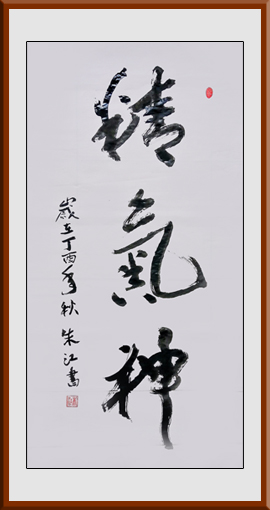 精氣神
歲在丁酉年秋 朱江書